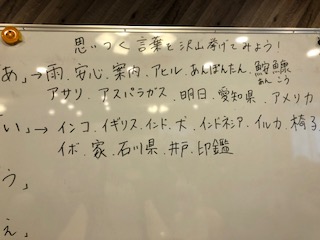 思いつく言葉を沢山挙げてみよう!
あ」→雨.安心.案内.アヒル.あんぽんたん.鮟鱇
あんこう
アサリ.アスパラガス.明日.愛知県.アメリカ
い」→インコ.イギリス.インド.犬.インドネシア.イルカ.椅子
イボ.家.石川県.井戸.印鑑
う」
え」